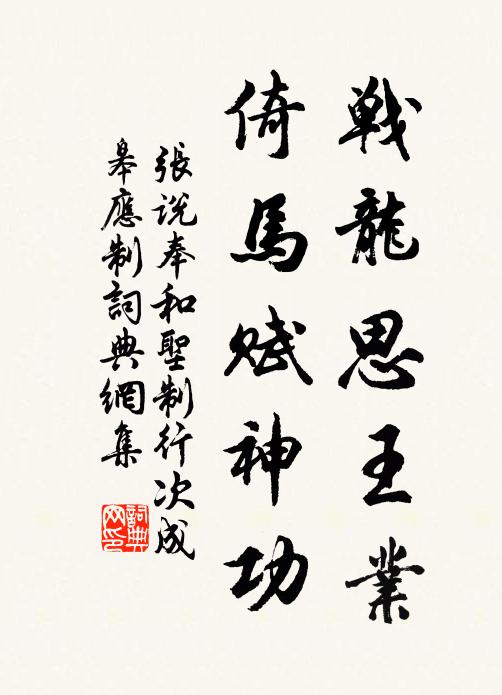 戦龍思王業
倚馬赋神功
張説奉和聖制行次成
皋應制詞典網集
詞典网印